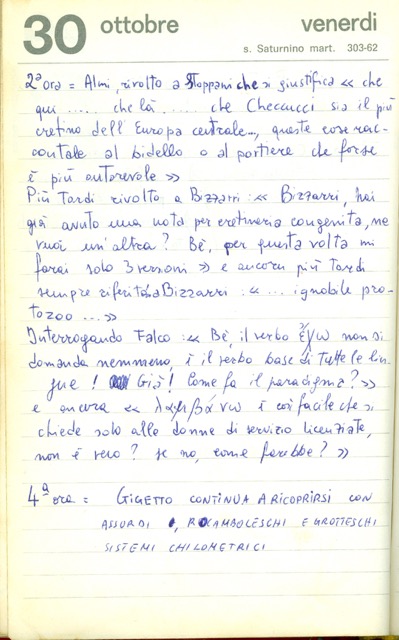 30 ottobre venerdi
s. Saturnino mart. 303-62
2ª ora = Almi, rivolto a Stoppani che si giustifica « che
qui ..... che là ..... che Checcucci sia il più
cretino dell'Europa centrale..., queste cose rac-
contale al bidello o al portiere che forse
è più autorevole »
Più Tardi rivolto a Bizzarri : « Bizzarri, hai
già avuto una nota per cretineria congenita, ne
vuoi un'altra? Bè, per questa volta mi
farai solo 3 versioni » e ancora più tardi
sempre riferito a Bizzarri : « ... ignobile pro-
tozoo ... »
Interrogando Falco : « Bè, il verbo ἔχω non si
domanda nemmeno, è il verbo base di tutte le lin-
gue! Già! Come fa il paradigma? »
e ancora « λαμβάνω è così facile che si
chiede solo alle donne di servizio licenziate,
non è vero? se no, come farebbe? »
4ª ora = GIGETTO CONTINUA A RICOPRIRSI CON
ASSURDI, ROCAMBOLESCHI E GROTTESCHI
SISTEMI CHILOMETRICI